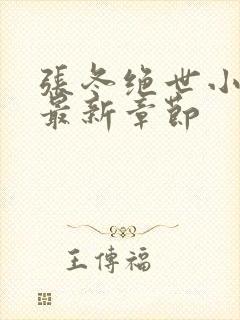 張冬绝世小
最新章節
王傳福